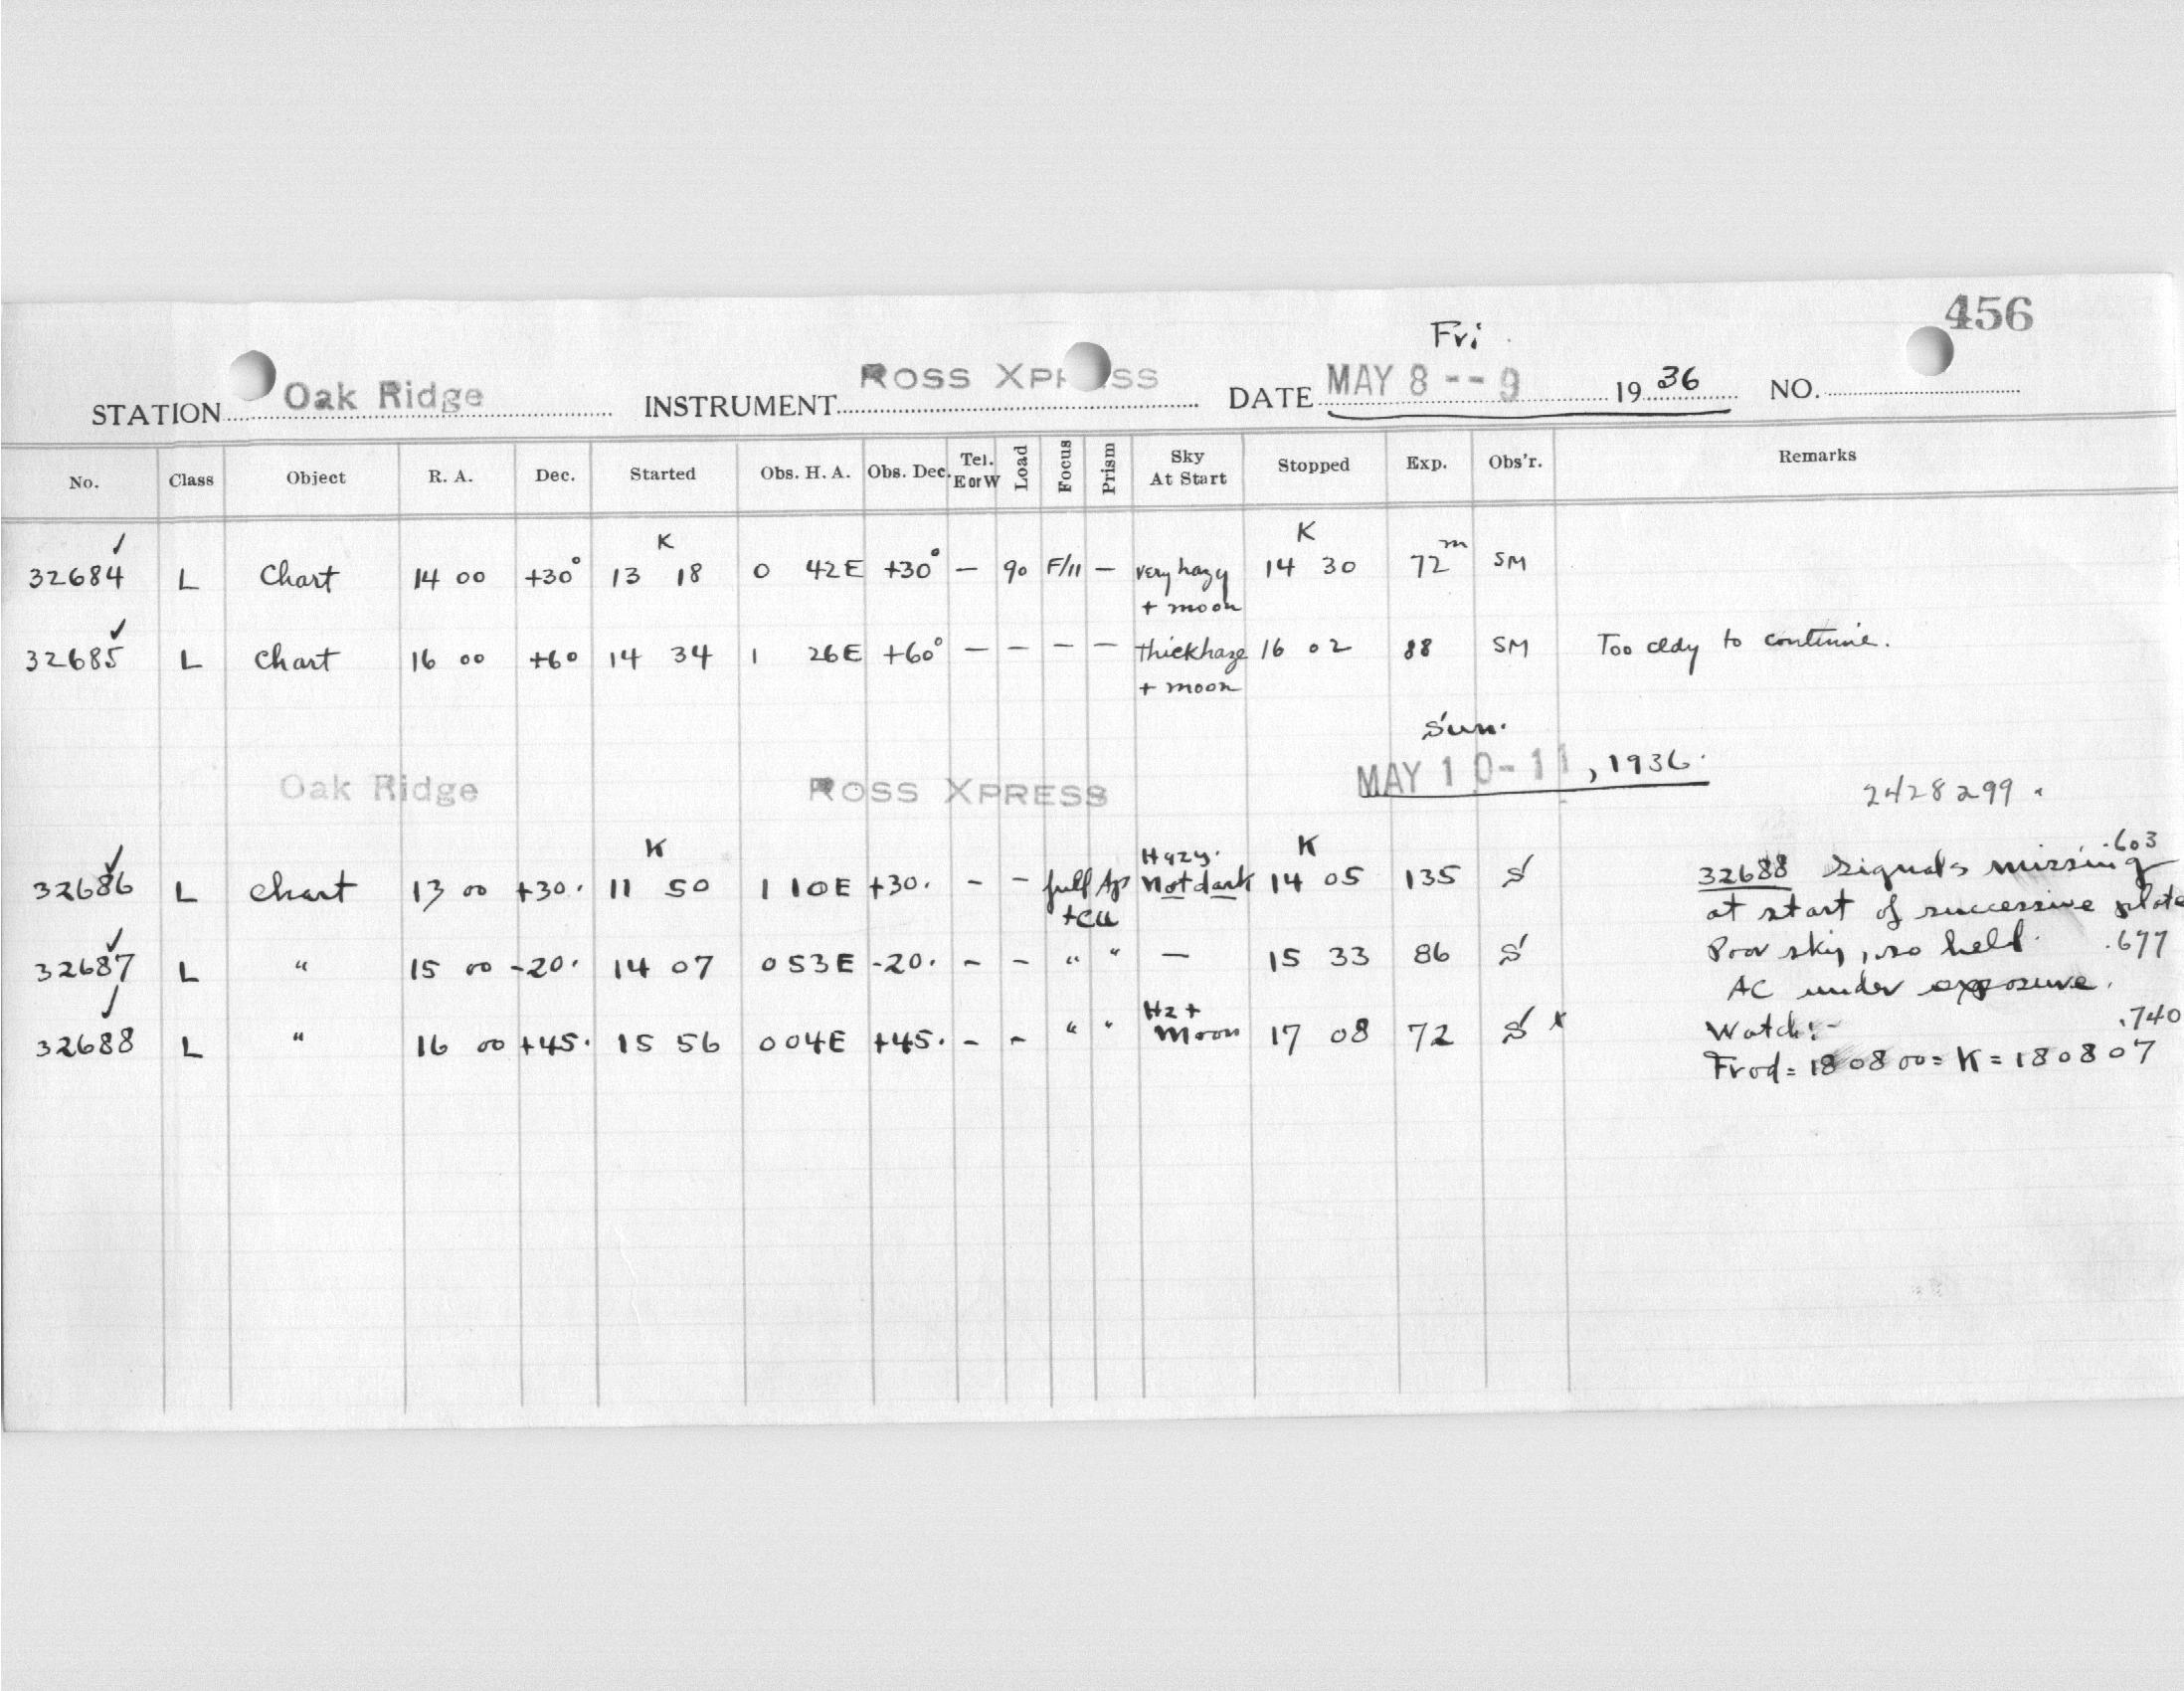 456
Fri
STATION Oak Ridge INSTRUMENT ROSS XPRESS DATE MAY 8 -- 9 1936 NO.
No. Class Object R. A. Dec. Started Obs. H. A. Obs. Dec. Tel. E or W Load Focus Prism Sky At Start Stopped Exp. Obs'r. Remarks
✓ K K
32684 L Chart 14 00 +30° 13 18 0 42E +30° — 90 F/11 — very hazy 14 30 72m SM
+ moon
✓
32685 L Chart 16 00 +60 14 34 1 26E +60° — — — — thick haze 16 02 88 SM Too cldy to continue.
+ moon
Sun.
Oak Ridge ROSS XPRESS MAY 10-11, 1936.
2428299.
✓ K Hazy. K .603
32686 L Chart 13 00 +30. 11 50 1 10E +30. - - full Ap Not dark 14 05 135 S 32688 Signals missing
at start of successive plate
✓
32687 L " 15 00 -20. 14 07 0 53E -20. - - " " — 15 33 86 S Poor sky, so held. .677
AC under exposure.
✓ Hz +
32688 L " 16 00 +45. 15 56 0 04E +45. - - " " Moon 17 08 72 S x Watch:- .740
Frod = 18 08 00 = K = 18 08 07